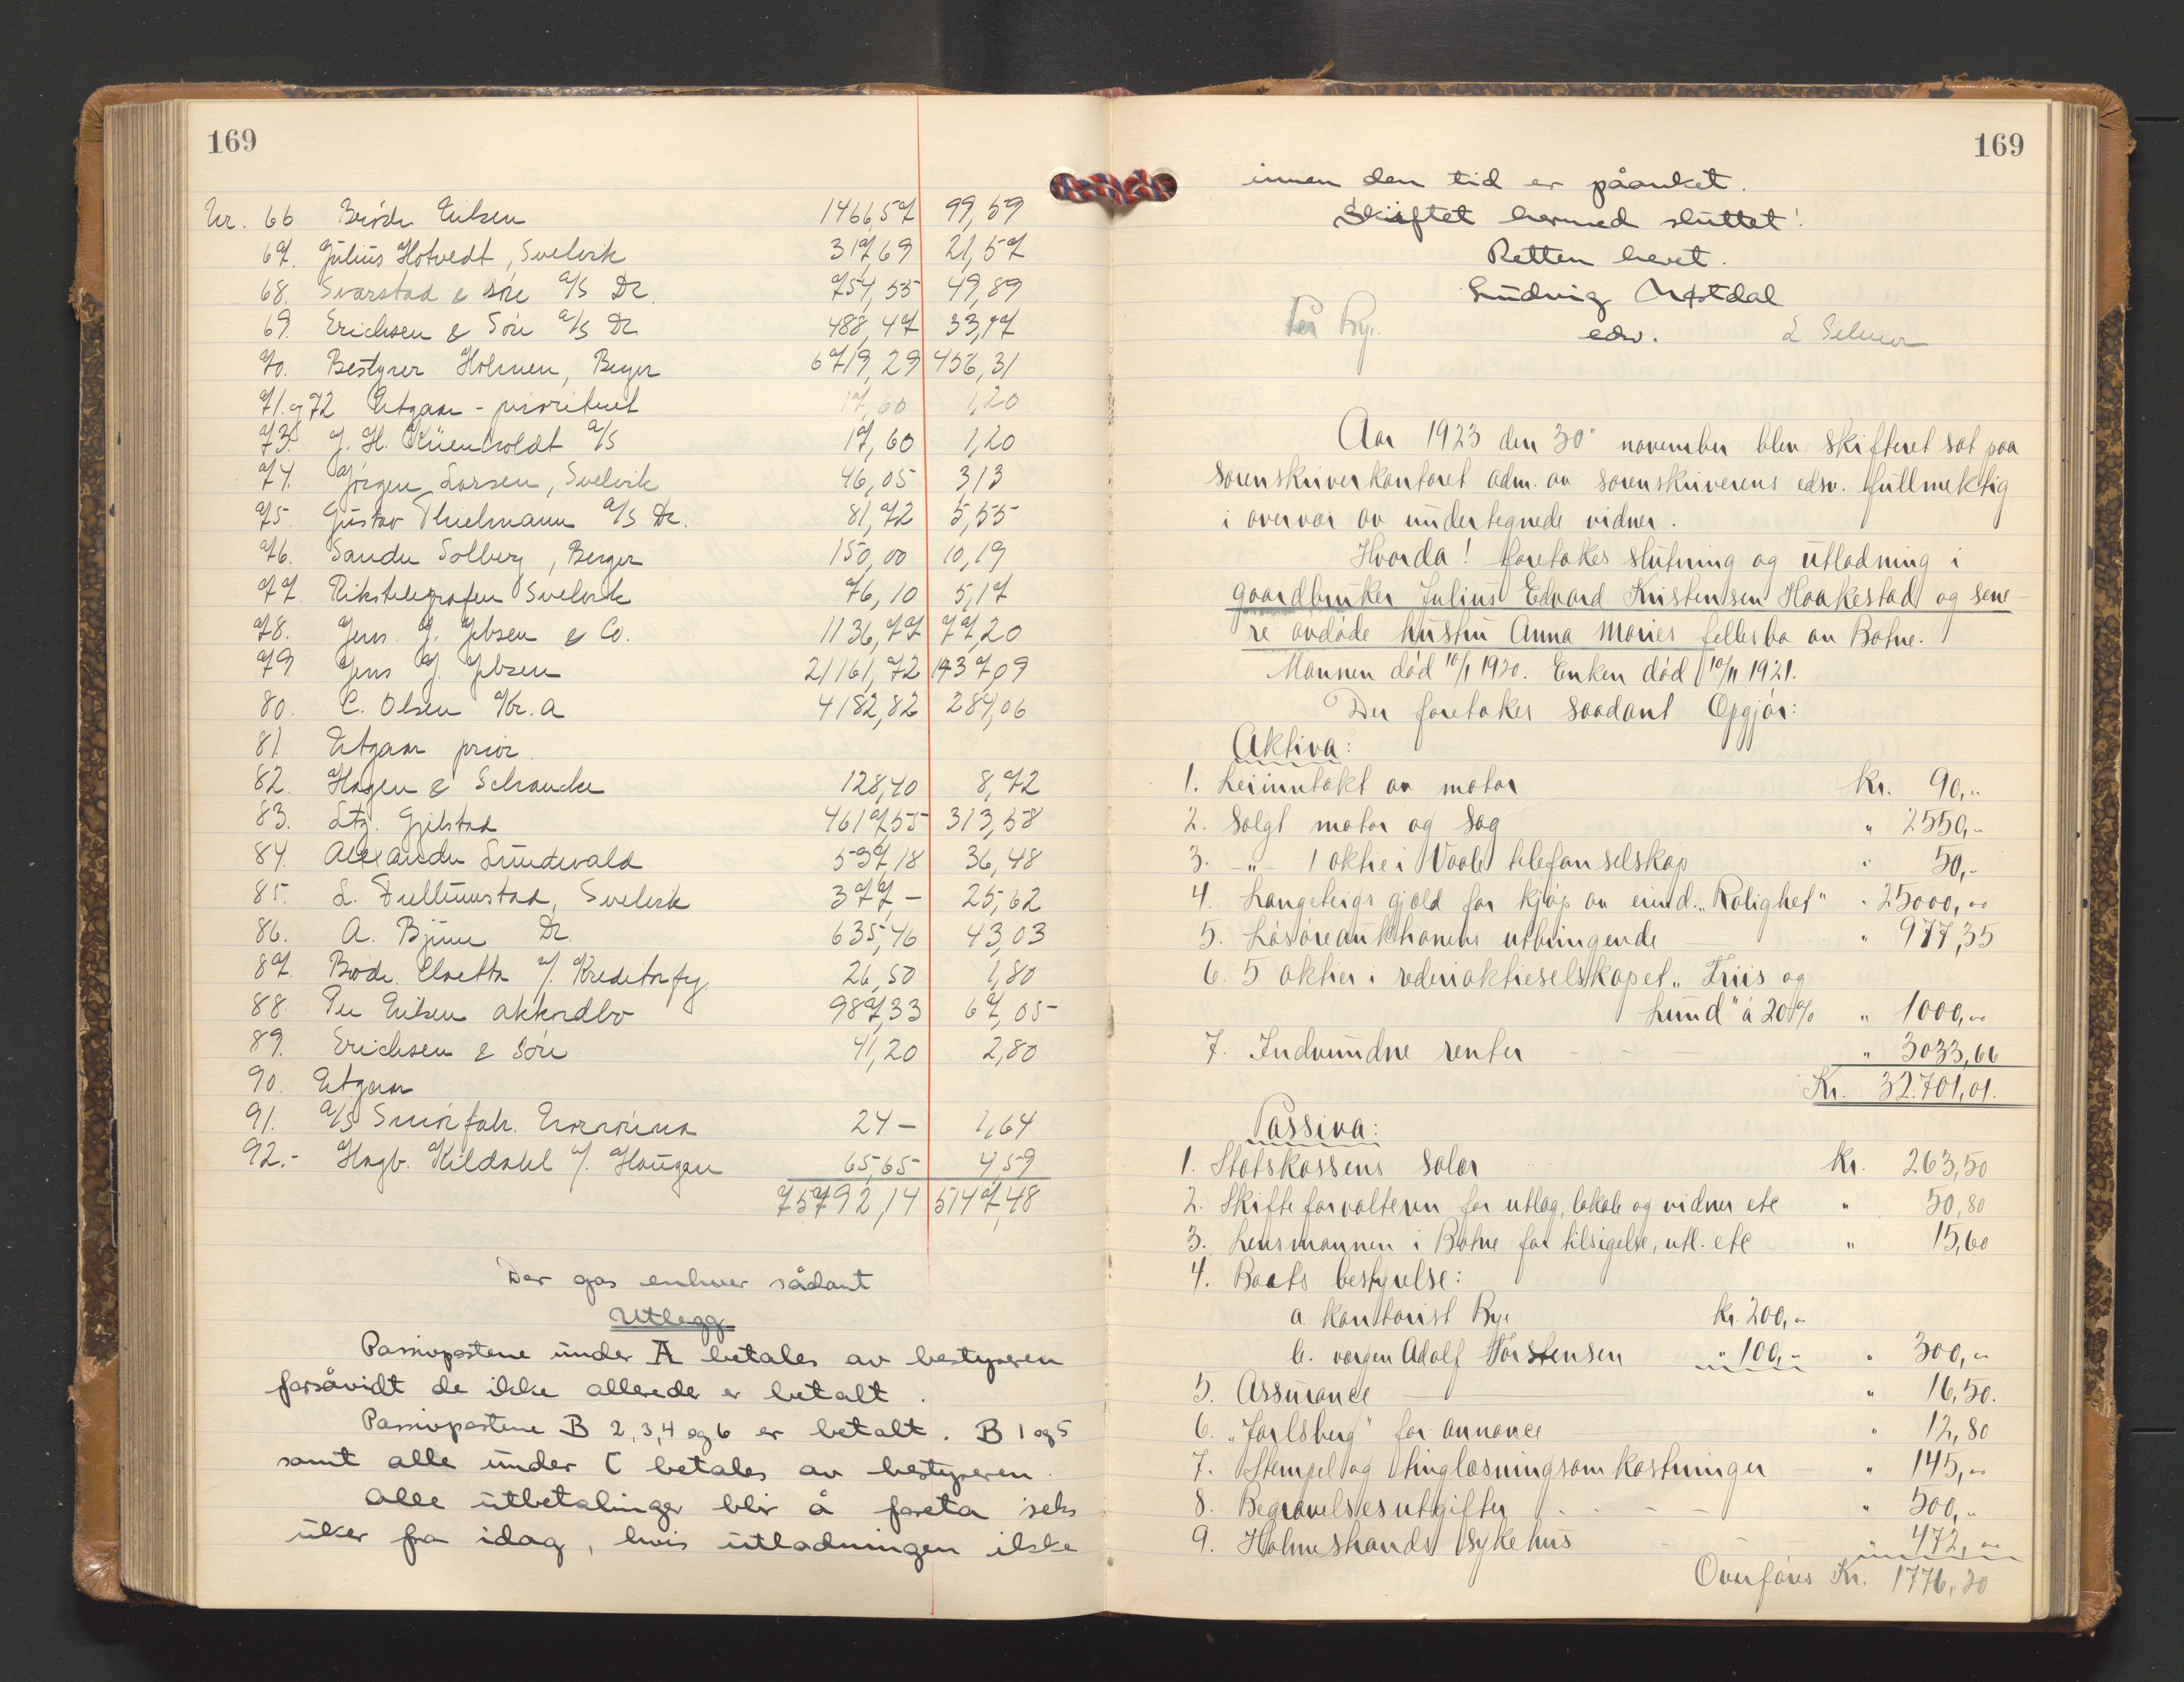 169
Nr. 66 Brødr Eriksen 1466,57 99,59
67. Julius Hotvedt, Svelvik 317,69 21,57
68. Svarstad & Søn a/s Dr. 754,55 49,89
69. Erichsen & Søn a/s Dr 488,47 33,17
70. Bestyrer Holmen, Berger 6719,29 456,31
71. og 72 Utgaar - prioritert 17,60 1,20
73. J. H. Küenholdt a/s 17,60 1,20
74. Jørgen Larsen, Svelvik 46,05 313
75. Gustav Thielmann a/s Dr. 81,72 5,55
76. Sander Solberg, Berger 150,00 10,19
77. Rikstelegrafen Svelvik 76,10 5,17
78. Jens. J. Jebsen & Co. 1136,77 77,20
79 Jens J. Jebsen 21161,72 1437,09
80. C. Olsen Kr.a 4182,82 284,06
81. Utgaar prior
82. Hagen & Schancke 128,40 8,72
83. Gjelstad 4617,55 313,58
84. Alexander Lundevald 537,18 36,48
85. L. Tullumstad, Svelvik 377,- 25,62
86. A. Bjune Dr. 635,46 43,03
87. Brødr. Cloetta v/. Kreditorfg. 26,50 1,80
88. Per Eriksen akkordbo 987,33 67,05
89. Erichsen & Søn 41,20 2,80
90. Utgaar
91. a/s Smørfabr. 24 - 1,64
92.- Hagb. Kildahl v/. Haugen 65,65 4,59
75792,14 5147,48
Der gøs enhver sådant
Utlegg
Passivpostene under A betales av bestyreren
forsåvidt de ikke allerede er betalt.
Passivpostene B 2, 3, 4 og 6 er betalt. B 1 og 5
samt alle under C betales av bestyreren.
Alle utbetalinger blir å foreta seks
uker fra idag, hvis utlodningen ikke
169
innen den tid er påanket.
Skiftet hermed sluttet!
Retten hevet.
Ludvig Møstdal
edsv.
Per Bye.
L Selmer
Aar 1923 den 30' november blev skifteret sat paa
sorenskriverkontoret adm. av sorenskriverens edsv. fullmektig
i overvær av undertegnede vidner.
Hvorda! foretakes slutning og utlodning i
gaardbruker Julius Edvard Kristensen Haakestad og sene-
re avdøde hustru Anna Maries fellesbo av Botne.
Mannen død 10/1 1920. Enken død 10/11 1921.
Der foretakes saadant Opgjør:
Aktiva:
1. Leieinntækt av motor Kr. 90,"
2. Solgt motor og sag " 2550,-
3. -"- 1 aktie i Vaale telefonselskap " 50,-
4. Langeteigs gjæld for kjøp av eiend. "Rolighet" " 25000,00
5. Løsøreauktionens utbringende " 977,35
6. 5 aktier i rederiaktieselskapet "Friis og
Lund" á 20% " 1000,00
7. Indvundne renter " 3033,66
Kr. 32.701,01.
Passiva:
1. Statskassens salær Kr. 263,50
2. Skifteforvalteren for utlæg, lokale og vidner etc " 50,80
3. Lensmannen i Botne for tilsigelse, utl. etc " 15,60
4. Boets bestyrelse:
a. kontorist Bye Kr. 200,-
b. vergen Adolf Torstensen " 100,- " 300,-
5. Assurance " 16,50.
6. "Jarlsberg" for annonce " 12,80
7. Stempel og tinglæsningsomkostninger " 145,00
8. Begravelsesutgifter " 500,-
9. Holmestrands sykehus " 472,00
Overføres Kr. 1776,20